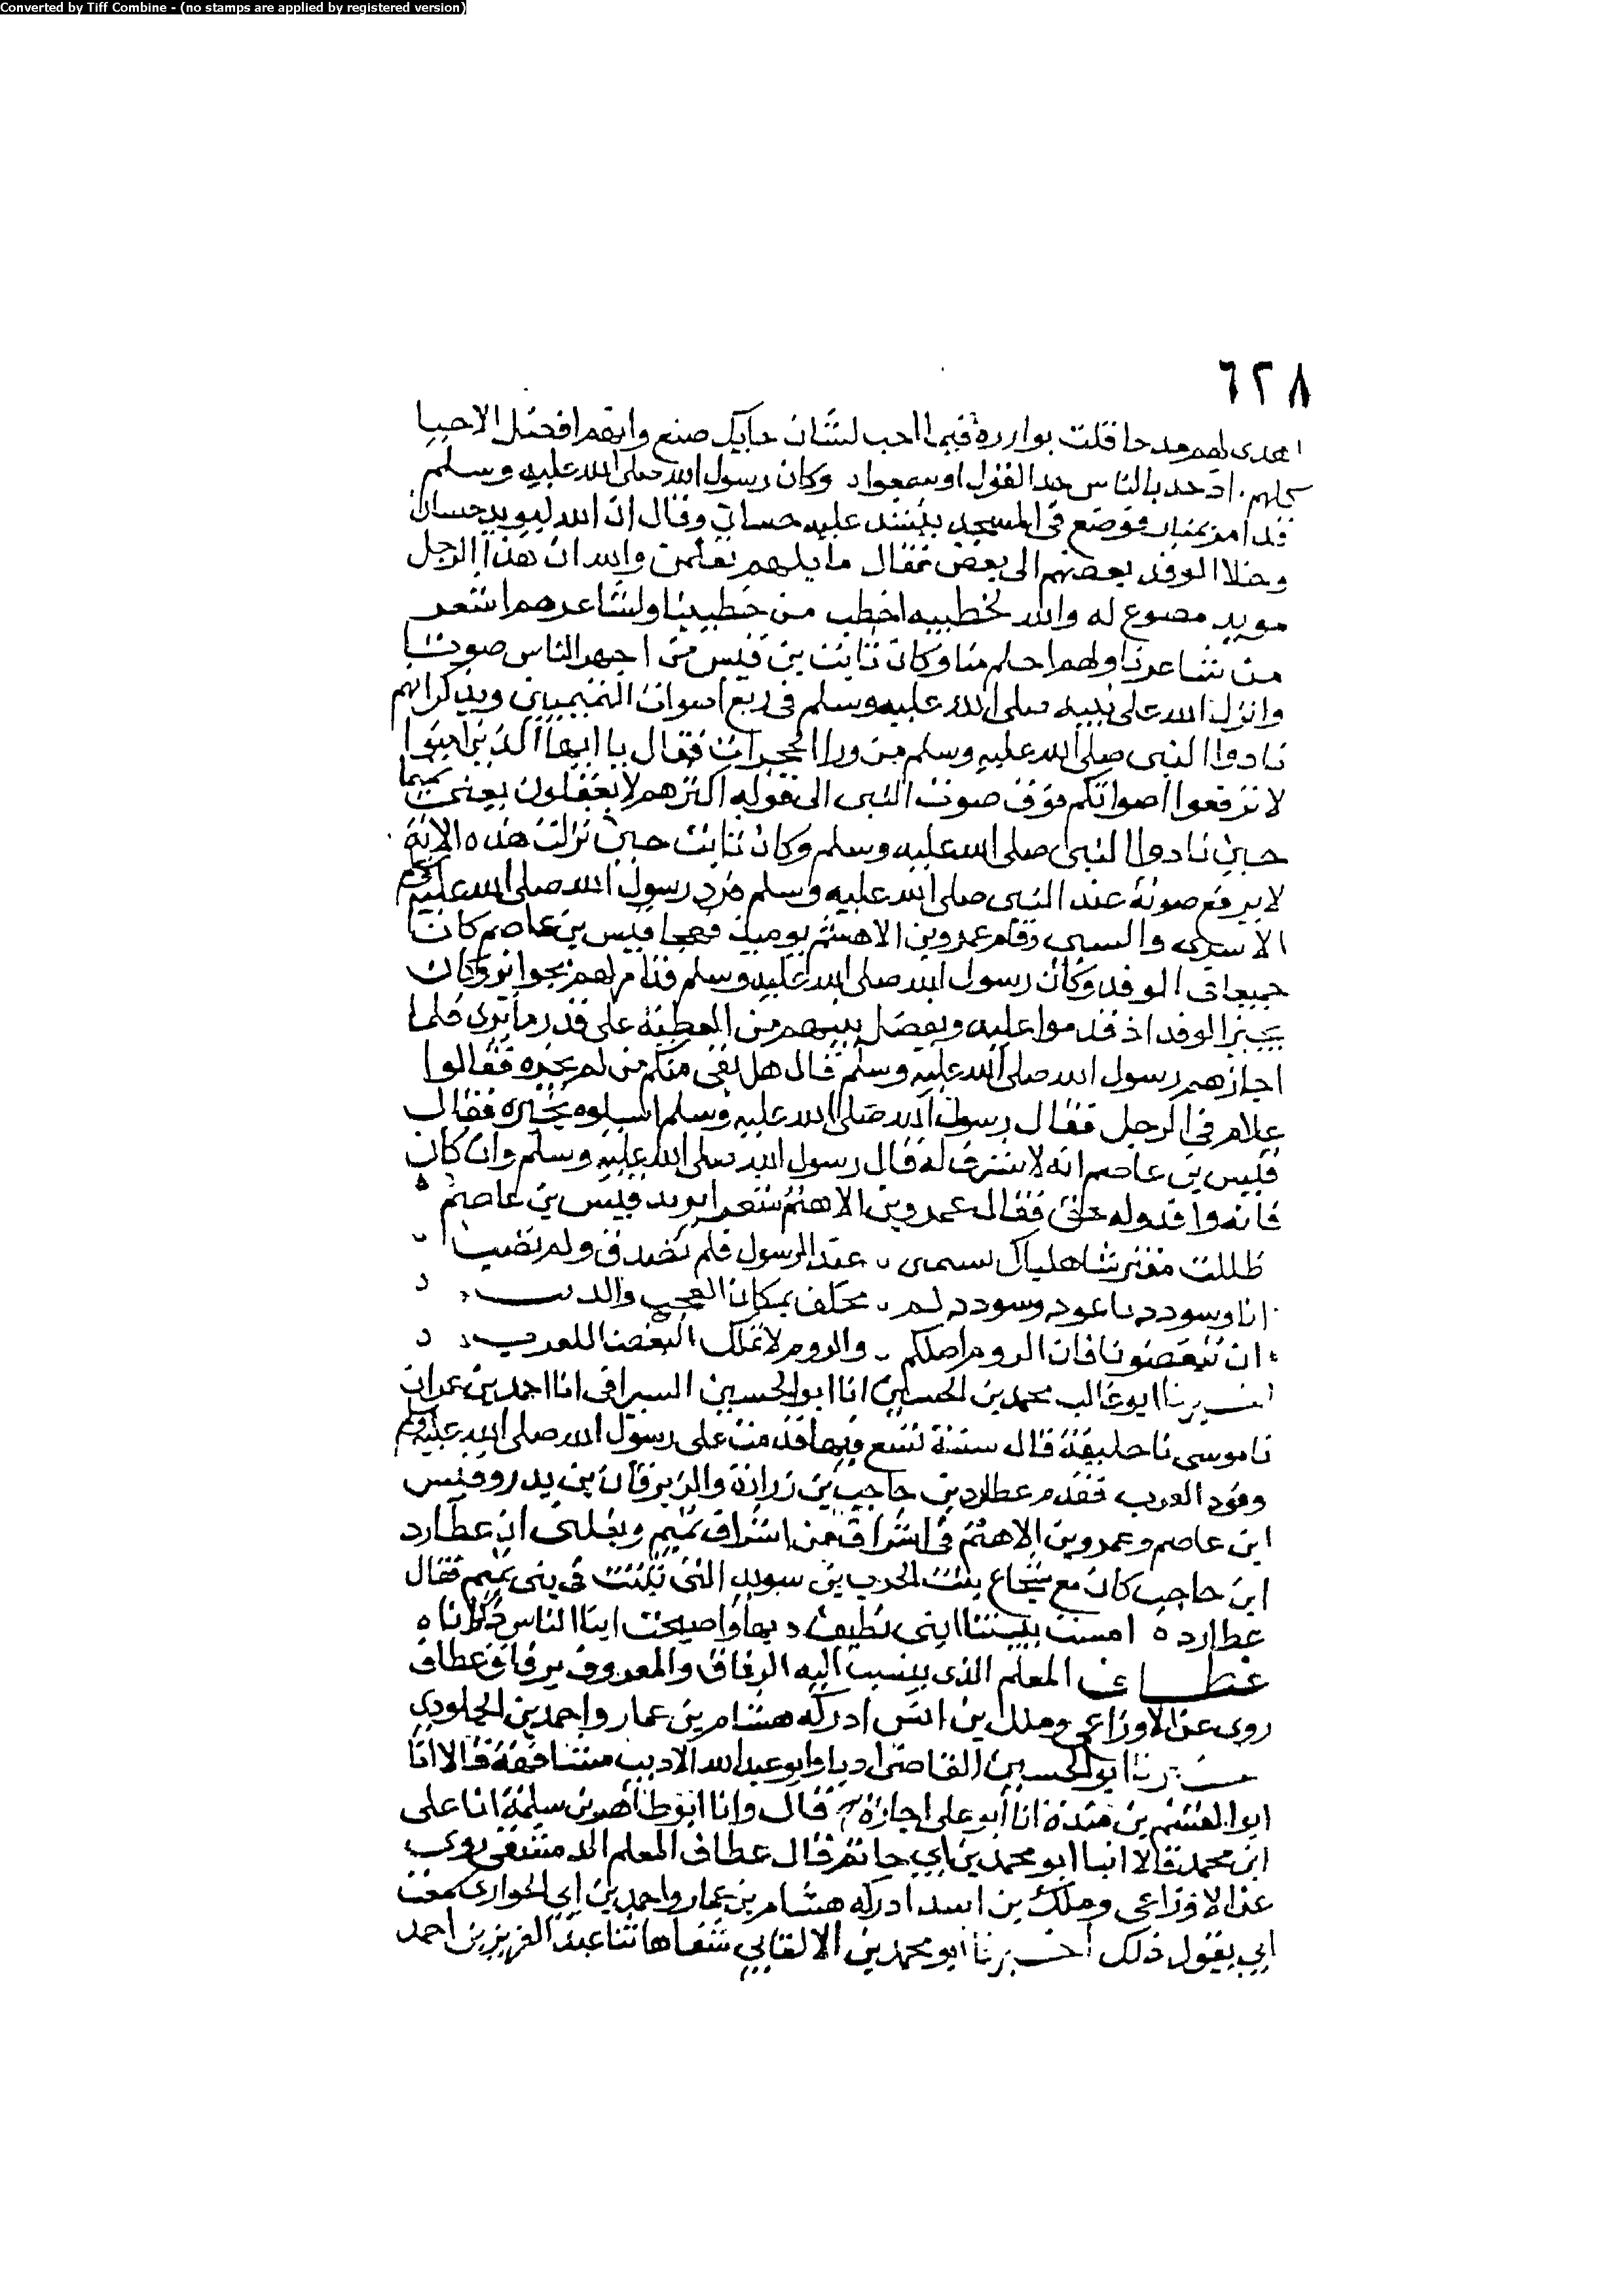 Converted by Tiff Combine - (no stamps are applied by registered version)
٦٢٨
اهدى لهم مدحا قلب يوازره فيما احب لسان حايك صنع وانهم افضل الاحيا
كلهم ان جد بالناس جد القول او سمعوا وكان رسول الله صلى الله عليه وسلم
قد امر بمنبر فوضع في المسجد ينشد عليه حسان وقال ان الله ليويد حسان
وخلا الوفد بعضهم الى بعض فقال قايلهم تعلمن والله ان هذا الرجل
مويد مصنوع له والله لخطيبه اخطب من خطيبنا ولشاعرهم اشعر
من شاعرنا ولهم احلم منا وكان ثابت بن قيس من اجهر الناس صوتا
وانزل الله على نبيه صلى الله عليه وسلم في رفع اصوات التميميين ويذكر انهم
نادوا النبي صلى الله عليه وسلم من ورا الحجرات فقال يا ايها الذين امنوا
لا ترفعوا اصواتكم فوق صوت النبي الى قوله اكثرهم لا يعقلون يعني تميما
حين نادوا النبي صلى الله عليه وسلم وكان ثابت حين نزلت هذه الاية
لا يرفع صوته عند النبي صلى الله عليه وسلم فرد رسول الله صلى الله عليه وسلم
الاسرى والسبي وقام عمرو بن الاهتم يوميذ فهجا قيس بن عاصم كانا
جميعا في الوفد وكان رسول الله صلى الله عليه وسلم قد امر لهم بجوايز وكان
يجيز الوفد اذ قدموا عليه ويفضل بينهم من العطية على قدر ما يرى فلما
اجازهم رسول الله صلى الله عليه وسلم قال هل بقي منكم من لم نجزه فقالوا
غلام في الرحل فقال رسول الله صلى الله عليه وسلم ارسلوه نجزه فقال
قيس بن عاصم انه لا شرف له قال رسول الله صلى الله عليه وسلم وان كان
فانه وافد وله حق فقال عمرو بن الاهتم شعرا يريد قيس بن عاصم
ظللت مفترشا هلباك عند الرسول فلم تصدق ولم تصب
انا وسوددنا عود وسوددكم مخلف بمكان العجب والذنب
ان تبغضونا فان الروم اصلكم والروم لا تملك البغضا للعرب
اخبرنا ابو غالب محمد بن الحسن انا ابو الحسين السيرافي انا احمد بن عمران
نا موسى نا خليفة قال سنة تسع فيها قدمت على رسول الله صلى الله عليه وسلم
وفود العرب فقدم عطارد بن حاجب بن زرارة والزبرقان بن بدر وقيس
ابن عاصم وعمرو بن الاهتم في اشراف من اشراف تميم وبلغني ان عطارد
ابن حاجب كان مع سجاح بنت الحرب بن سويد التي تنبت في بني تميم فقال
عطارد ه امست نبيتنا انثى نطيف بها واصبحت انبيا الناس ذكرانا ه
عطاف المعلم الذي ينسب اليه الزقاق والمعروف بزقاق عطاف
روى عن الاوزاعي وملك بن انس ادركه هشام بن عمار واحمد بن الحلودي
اخبرنا ابو الحسين القاضي اذنا وابو عبد الله الاديب مشافهة قالا انا
ابو القسم بن مندة انا ابو علي اجازة ح قال وانا ابو طاهر بن سلمة انا علي
ابن محمد قالا انبا ابو محمد بن ابي حاتم قال عطاف المعلم الدمشقي روى
عن الاوزاعي وملك بن اسد ادركه هشام بن عمار واحمد بن ابي الحواري سمعت
ابي يقول ذلك اخبرنا ابو محمد بن الاكفاني شفاها ثنا عبد العزيز بن احمد